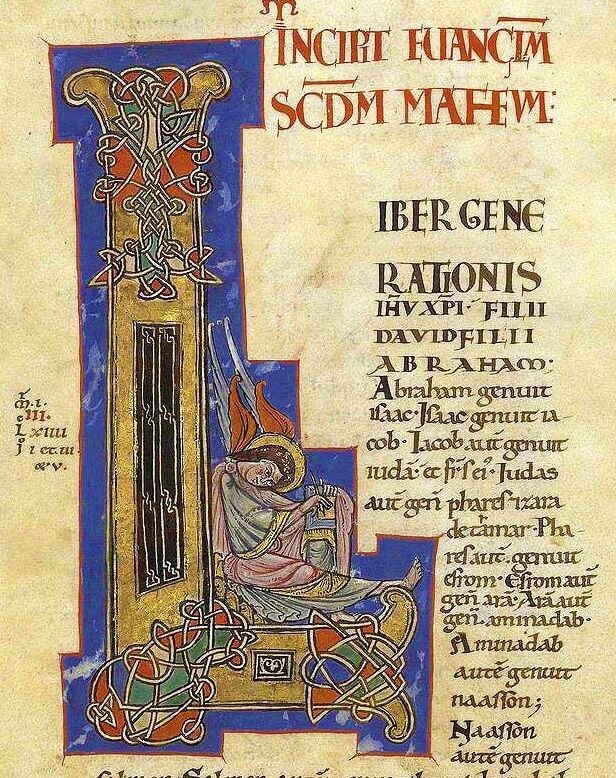 INCIPIT EUANGLM
SCDM MATHEUM:
L
IBER GENE
RATIONIS
IHU XPI · FILII
DAVID FILII
ABRAHAM·
Abraham genuit
isaac· Isaac genuit ia
cob· Iacob aut genuit
iudā· et frs ei'· Iudas
aut gen phares 7 zara
de tāmar· Pha
res aut· genuit
esrom· Esrom aut
gen arā· Arā aut
gen· aminadab·
Aminadab
autē genuit
naasson;
Naasson
autē genuit
m̄·i·
III·
L xiiii
i et iii
& v·